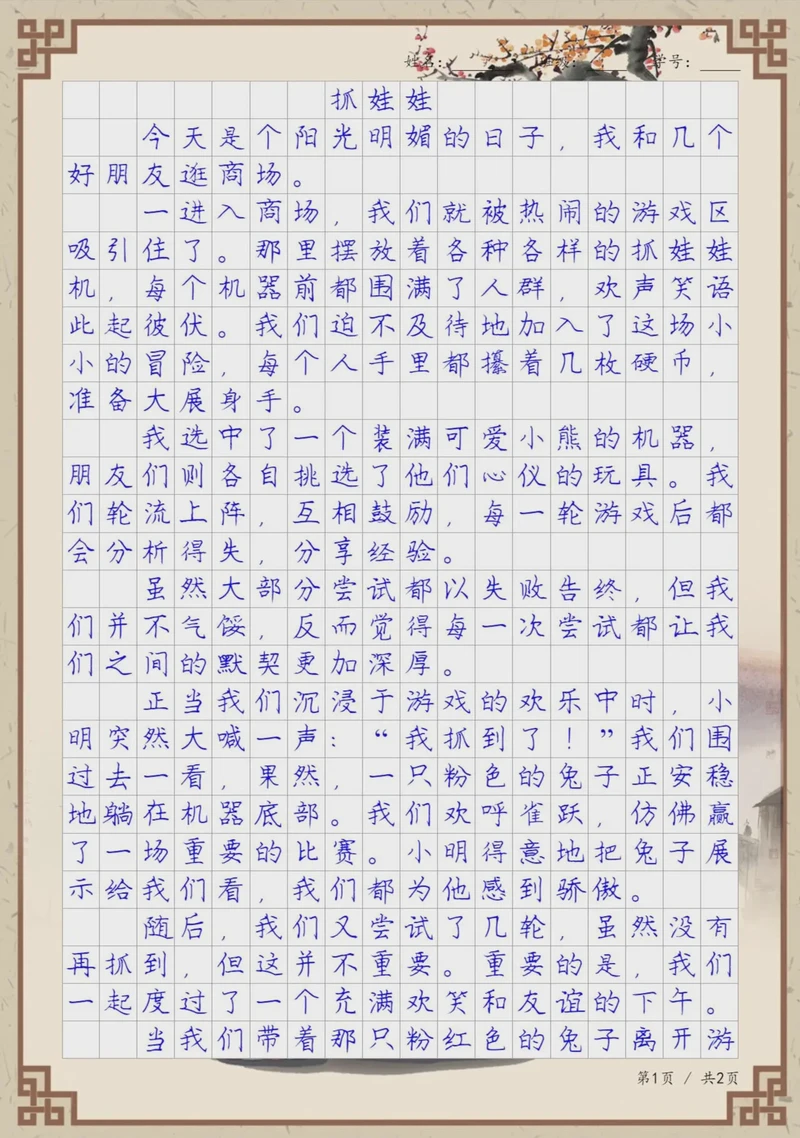 姓名： 学号：
抓娃娃
今天是个阳光明媚的日子，我和几个
好朋友逛商场。
一进入商场，我们就被热闹的游戏区
吸引住了。那里摆放着各种各样的抓娃娃
机，每个机器前都围满了人群，欢声笑语
此起彼伏。我们迫不及待地加入了这场小
小的冒险，每个人手里都攥着几枚硬币，
准备大展身手。
我选中了一个装满可爱小熊的机器，
朋友们则各自挑选了他们心仪的玩具。我
们轮流上阵，互相鼓励，每一轮游戏后都
会分析得失，分享经验。
虽然大部分尝试都以失败告终，但我
们并不气馁，反而觉得每一次尝试都让我
们之间的默契更加深厚。
正当我们沉浸于游戏的欢乐中时，小
明突然大喊一声：“我抓到了！”我们围
过去一看，果然，一只粉色的兔子正安稳
地躺在机器底部。我们欢呼雀跃，仿佛赢
了一场重要的比赛。小明得意地把兔子展
示给我们看，我们都为他感到骄傲。
随后，我们又尝试了几轮，虽然没有
再抓到，但这并不重要。重要的是，我们
一起度过了一个充满欢笑和友谊的下午。
当我们带着那只粉红色的兔子离开游
第1页 / 共2页